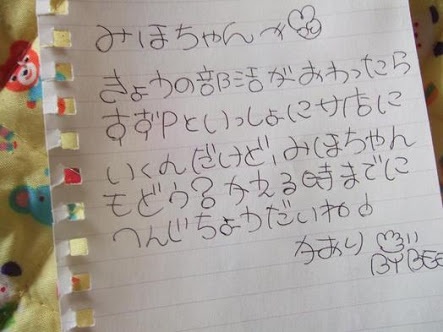 みほちゃんへ
きょうの部活がおわったら
すずPといっしょにサ店に
いくんだけど、みほちゃん
もどう？かえる時までに
へんじちょうだいね♪
かおり
BYBEE